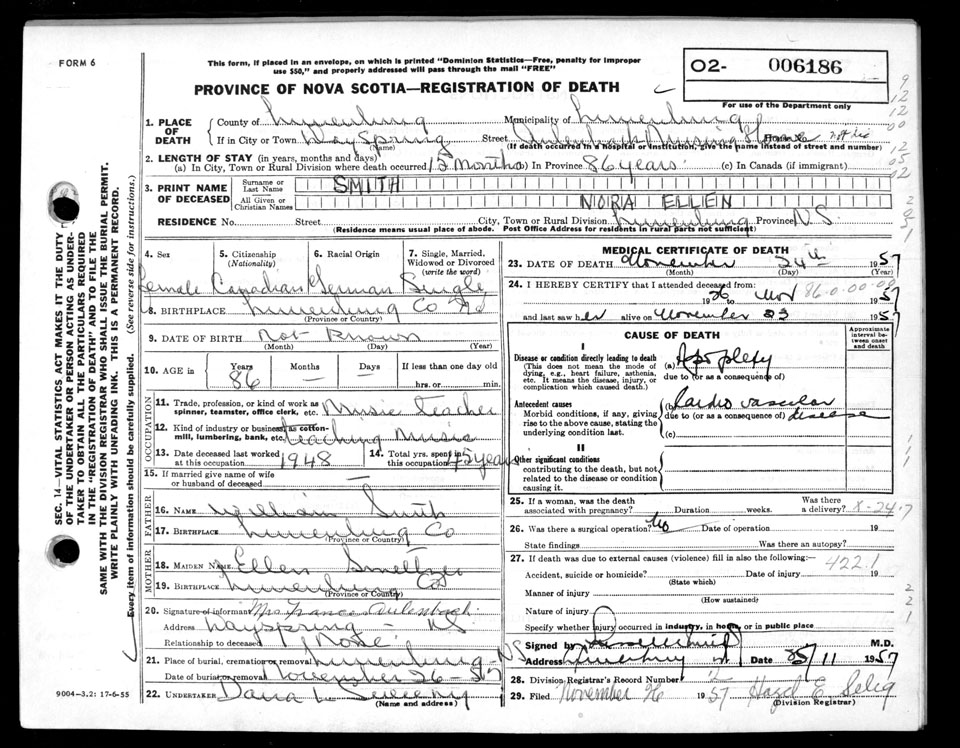 FORM 6
This form, if placed in an envelope, on which is printed "Dominion Statistics—Free, penalty for improper
use $50," and properly addressed will pass through the mail "FREE"
O2- 006186
PROVINCE OF NOVA SCOTIA—REGISTRATION OF DEATH
For use of the Department only
SEC. 14—VITAL STATISTICS ACT MAKES IT THE DUTY
OF THE UNDERTAKER OR PERSON ACTING AS UNDER-
TAKER TO OBTAIN ALL THE PARTICULARS REQUIRED
IN THE "REGISTRATION OF DEATH" AND TO FILE THE
SAME WITH THE DIVISION REGISTRAR WHO SHALL ISSUE THE BURIAL PERMIT.
WRITE PLAINLY WITH UNFADING INK. THIS IS A PERMANENT RECORD.
Every item of information should be carefully supplied. (See reverse side for instructions.)
1. PLACE OF DEATH
County of Lunenburg Municipality of Lunenburg
If in City or Town DaySpring (Name) Street Aulenback Nursing Home
(If death occurred in a hospital or institution, give the name instead of street and number)
2. LENGTH OF STAY (in years, months and days)
(a) In City, Town or Rural Division where death occurred 15 Months (b) In Province 86 years (c) In Canada (if immigrant)
3. PRINT NAME OF DECEASED
Surname or Last Name SMITH
All Given or Christian Names NORA ELLEN
RESIDENCE No. Street City, Town or Rural Division Lunenburg Province NS
(Residence means usual place of abode. Post Office Address for residents in rural parts not sufficient)
4. Sex Female
5. Citizenship (Nationality) Canadian
6. Racial Origin German
7. Single, Married, Widowed or Divorced (write the word) Single
8. BIRTHPLACE Lunenburg Co NS
(Province or Country)
9. DATE OF BIRTH Not Known
(Month) (Day) (Year)
10. AGE in Years 86 Months — Days If less than one day old
hrs. or min.
OCCUPATION
11. Trade, profession, or kind of work as
spinner, teamster, office clerk, etc. Music Teacher
12. Kind of industry or business, as cotton-
mill, lumbering, bank, etc. teaching Music
13. Date deceased last worked
at this occupation 1948
14. Total yrs. spent in
this occupation 45 years
15. If married give name of wife
or husband of deceased
FATHER
16. NAME William Smith
17. BIRTHPLACE Lunenburg Co
(Province or Country)
MOTHER
18. MAIDEN NAME Ellen Smeltzer
19. BIRTHPLACE Lunenburg Co
(Province or Country)
20. Signature of informant Mrs Frances Aulenback
Address Dayspring - NS
Relationship to deceased None
21. Place of burial, cremation or removal Lunenburg - NS
Date of burial or removal November 26 - 57
22. UNDERTAKER Dana L. Sweeny
(Name and address)
9004-3.2: 17-6-55
MEDICAL CERTIFICATE OF DEATH
23. DATE OF DEATH November 24th 1957
(Month) (Day) (Year)
24. I HEREBY CERTIFY that I attended deceased from:
1956 to Nov 1957
86-0-00-00
and last saw her alive on November 23 1957
CAUSE OF DEATH
Approximate interval be-tween onset and death
I
Disease or condition directly leading to death (a) Apoplexy
(This does not mean the mode of
dying, e.g., heart failure, asthenia,
etc. It means the disease, injury, or
complication which caused death.)
due to (or as a consequence of)
Antecedent causes (b) Cardio vascular disease
Morbid conditions, if any, giving
rise to the above cause, stating the
underlying condition last.
due to (or as a consequence of)
(c)
II
Other significant conditions
contributing to the death, but not
related to the disease or condition
causing it.
25. If a woman, was the death
associated with pregnancy? Duration weeks. Was there a delivery?
26. Was there a surgical operation? No Date of operation 19
State findings Was there an autopsy?
27. If death was due to external causes (violence) fill in also the following:— 422.1
Accident, suicide or homicide? Date of injury 19
(State which)
Manner of injury
(How sustained)
Nature of injury
Specify whether injury occurred in industry, in home, or in public place
Signed by M.D.
Address Date 25/11 1957
28. Division Registrar's Record Number
29. Filed November 26 1957 Hazel E. Selig
(Division Registrar)